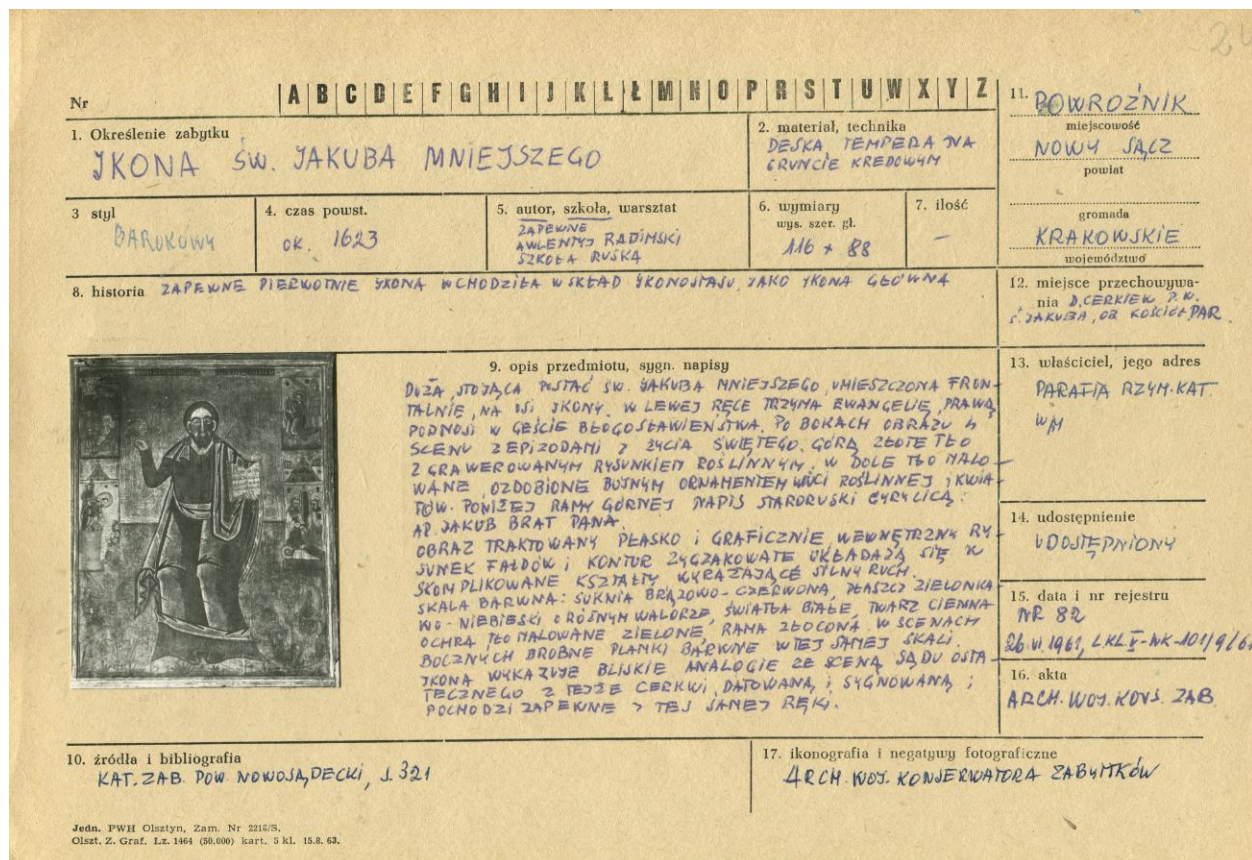 24
Nr
A B C D E F G H I J K L Ł M N O P R S T U W X Y Z
1. Określenie zabytku
IKONA ŚW. JAKUBA MNIEJSZEGO
2. materiał, technika
DESKA, TEMPERA NA
GRUNCIE KREDOWYM
3 styl
BAROKOWY
4. czas powst.
OK. 1623
5. autor, szkoła, warsztat
ZAPEWNE
AWLENTYJ RADIMSKI
SZKOŁA RUSKA
6. wymiary
wys. szer. gł.
116 x 88
7. ilość
–
8. historia ZAPEWNE PIERWOTNIE IKONA WCHODZIŁA W SKŁAD IKONOSTASU, JAKO IKONA GŁÓWNA
9. opis przedmiotu, sygn. napisy
DUŻA, STOJĄCA POSTAĆ ŚW. JAKUBA MNIEJSZEGO, UMIESZCZONA FRON-
TALNIE, NA OSI IKONY. W LEWEJ RĘCE TRZYMA EWANGELIĘ, PRAWĄ
PODNOSI W GEŚCIE BŁOGOSŁAWIEŃSTWA. PO BOKACH OBRAZU 4
SCENY Z EPIZODAMI Z ŻYCIA ŚWIĘTEGO. GÓRĄ ZŁOTE TŁO
Z GRAWEROWANYM RYSUNKIEM ROŚLINNYM, W DOLE TŁO MALO-
WANE, OZDOBIONE BUJNYM ORNAMENTEM WICI ROŚLINNEJ I KWIA-
TÓW. PONIŻEJ RAMY GÓRNEJ NAPIS STARORUSKI CYRYLICĄ:
AP. JAKUB BRAT PANA.
OBRAZ TRAKTOWANY PŁASKO I GRAFICZNIE, WEWNĘTRZNY RY-
SUNEK FAŁDÓW I KONTUR ZYGZAKOWATE UKŁADAJĄ SIĘ W
SKOMPLIKOWANE KSZTAŁTY WYRAŻAJĄCE SILNY RUCH.
SKALA BARWNA: SUKNIA BRĄZOWO-CZERWONA, PŁASZCZ ZIELONKA
WO-NIEBIESKI O RÓŻNYM WALORZE, ŚWIATŁA BIAŁE, TWARZ CIEMNA
OCHRA, TŁO MALOWANE ZIELONE, RAMA ZŁOCONA. W SCENACH
BOCZNYCH DROBNE PLAMKI BARWNE W TEJ SAMEJ SKALI.
IKONA WYKAZUJE BLISKIE ANALOGIE ZE SCENĄ SĄDU OSTA-
TECZNEGO Z TEJŻE CERKWI, DATOWANĄ I SYGNOWANĄ;
POCHODZI ZAPEWNE Z TEJ SAMEJ RĘKI.
10. źródła i bibliografia
KAT. ZAB. POW. NOWOSĄDECKI, s. 321
11. POWROŹNIK
miejscowość
NOWY SĄCZ
powiat
gromada
KRAKOWSKIE
województwo
12. miejsce przechowywa-
nia D. CERKIEW P.W.
Ś. JAKUBA, OB. KOŚCIÓŁ PAR.
13. właściciel, jego adres
PARAFIA RZYM-KAT.
W/M
14. udostępnienie
UDOSTĘPNIONY
15. data i nr rejestru
NR 82
26.VI.1961, LKL V-NK-101/9/61
16. akta
ARCH. WOJ. KONS. ZAB.
17. ikonografia i negatywy fotograficzne
ARCH. WOJ. KONSERWATORA ZABYTKÓW
Jedn. PWH Olsztyn, Zam. Nr 2216/S.
Olszt. Z. Graf. Lz. 1464 (50.000) kart. 5 kl. 15.8. 63.